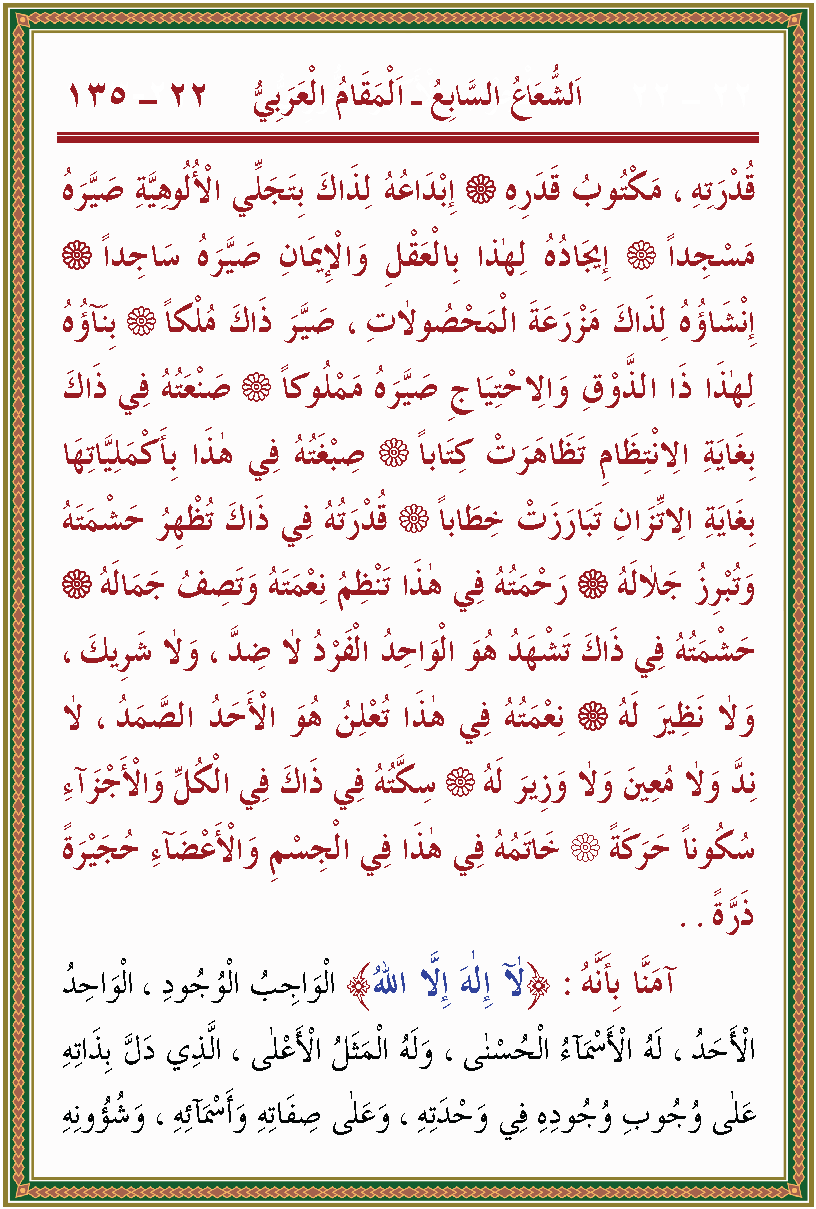 اَلشُّعَاعُ السَّابِعُ ـ اَلْمَقَامُ الْعَرَبِيُّ ٢٢ ـ ١٣٥
قُدْرَتِهِ ، مَكْتُوبُ قَدَرِهِ ۞ إِبْدَاعُهُ لِذَاكَ بِتَجَلِّي الْأُلُوهِيَّةِ صَيَّرَهُ
مَسْجِداً ۞ إِيجَادُهُ لِهٰذَا بِالْعَقْلِ وَالْإِيمَانِ صَيَّرَهُ سَاجِداً ۞
إِنْشَاؤُهُ لِذَاكَ مَزْرَعَةَ الْمَحْصُولاٰتِ ، صَيَّرَ ذَاكَ مُلْكاً ۞ بِنَآؤُهُ
لِهٰذَا ذَا الذَّوْقِ وَالِاحْتِيَاجِ صَيَّرَهُ مَمْلُوكاً ۞ صَنْعَتُهُ فِي ذَاكَ
بِغَايَةِ الِانْتِظَامِ تَظَاهَرَتْ كِتَاباً ۞ صِبْغَتُهُ فِي هٰذَا بِأَكْمَلِيَّاتِهَا
بِغَايَةِ الِاتِّزَانِ تَبَارَزَتْ خِطَاباً ۞ قُدْرَتُهُ فِي ذَاكَ تُظْهِرُ حَشْمَتَهُ
وَتُبْرِزُ جَلاٰلَهُ ۞ رَحْمَتُهُ فِي هٰذَا تَنْظِمُ نِعْمَتَهُ وَتَصِفُ جَمَالَهُ ۞
حَشْمَتُهُ فِي ذَاكَ تَشْهَدُ هُوَ الْوَاحِدُ الْفَرْدُ لاٰ ضِدَّ ، وَلاٰ شَرِيكَ ،
وَلاٰ نَظِيرَ لَهُ ۞ نِعْمَتُهُ فِي هٰذَا تُعْلِنُ هُوَ الْأَحَدُ الصَّمَدُ ، لاٰ
نِدَّ وَلاٰ مُعِينَ وَلاٰ وَزِيرَ لَهُ ۞ سِكَّتُهُ فِي ذَاكَ فِي الْكُلِّ وَالْأَجْزَآءِ
سُكُوناً حَرَكَةً ۞ خَاتَمُهُ فِي هٰذَا فِي الْجِسْمِ وَالْأَعْضَآءِ حُجَيْرَةً
ذَرَّةً . .
آمَنَّا بِأَنَّهُ : ﴿لآٰ إِلٰهَ إِلَّا اللهُ﴾ الْوَاجِبُ الْوُجُودِ ، الْوَاحِدُ
الْأَحَدُ ، لَهُ الْأَسْمَآءُ الْحُسْنٰى ، وَلَهُ الْمَثَلُ الْأَعْلٰى ، الَّذِي دَلَّ بِذَاتِهِ
عَلٰى وُجُوبِ وُجُودِهِ فِي وَحْدَتِهِ ، وَعَلٰى صِفَاتِهِ وَأَسْمَآئِهِ ، وَشُؤُونِهِ